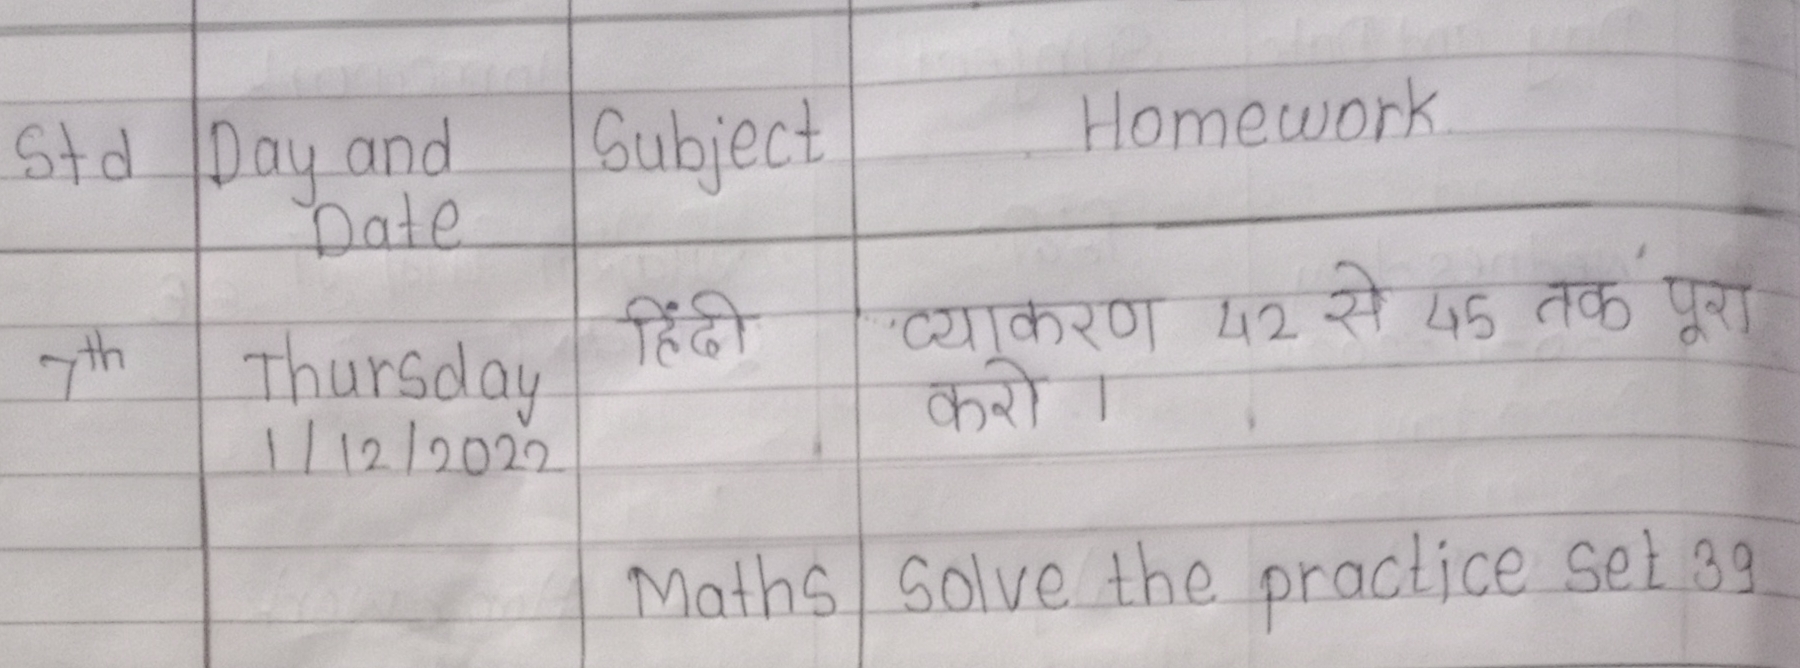 Std Day and Subject Homework
Date
हिंदी व्याकरण 42 से 45 तक पूरा
7th Thursday करो ।
1/12/2022
Maths Solve the practice set 39